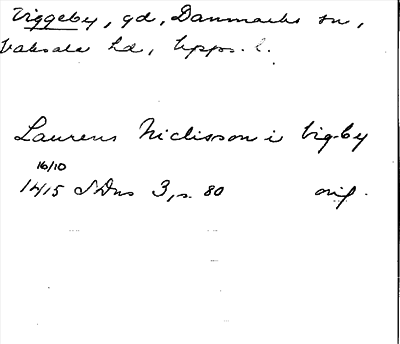 Viggeby, gd, Danmarks sn,
Vaksala hd, Upps. l.
Laurens Niclisson i Vigby
16/10
1415 SDns 3, s. 80 orig.